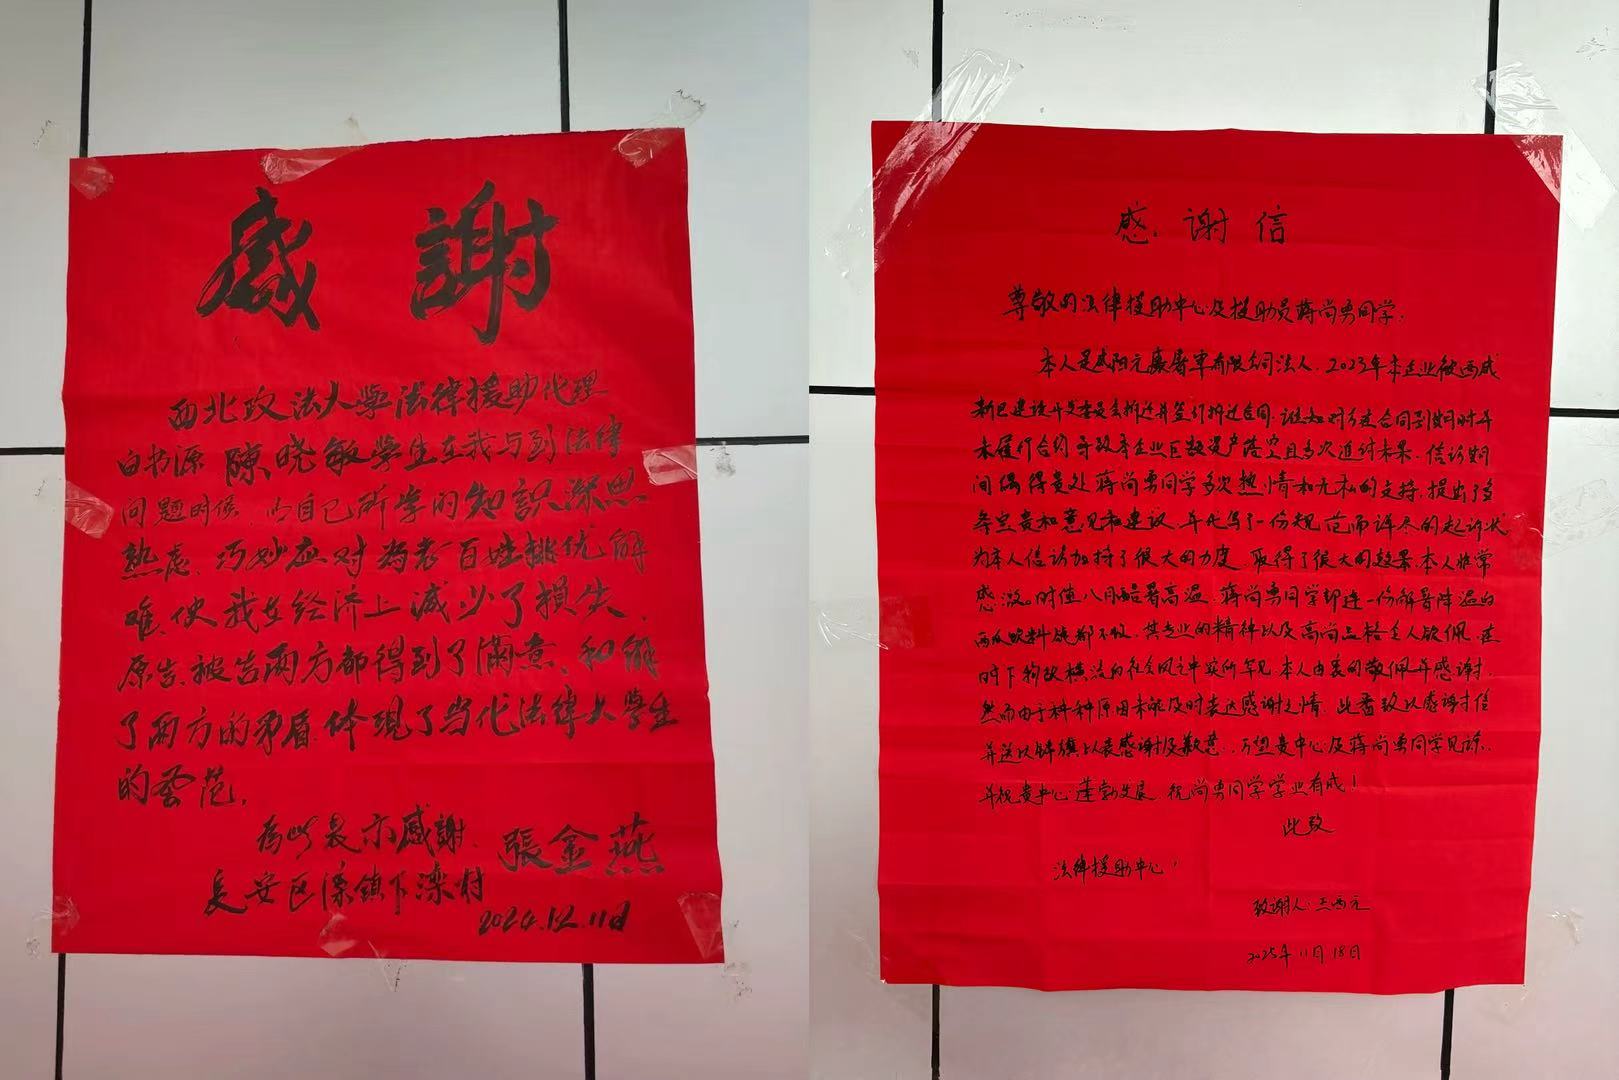 感謝
西北政法大學法律援助代理
白书源 陳晓敏學生在我与到法律
问题时候,的自己所学的知識深思
熟虑、巧妙应对为老百姓排忧解
难,使我在经济上減少了損失、
原告、被告两方都得到了滿意、和解
了两方的矛盾.体現了当代法律大學生
的 范.
為此表示感謝. 張金燕
長安区滦鎮下滦村
2024.12.11日
感谢信
尊敬的法律援助中心及援助员蒋尚勇同学:
本人是咸阳元 有限公司法人,2023年本企业被西咸
新区建设开发 拆迁并签订拆迁合同,谁知对方在合同到期时并
未履行合约导致本企业巨额资产落空且多次追讨未果,信访期
间偶得贵处蒋尚勇同学多次热情和无私的支持,提出了多
条宝贵和意见和建议,并代写了一份规范而详尽的起诉状
为本人信访加持了很大的力度,取得了很大的效果,本人非常
感激。时值八月酷暑高温,蒋尚勇同学却连一份解暑降温的
西瓜饮料饶都不收,其专业的精神以及高尚品格令人钦佩,在
时下物欲横流的社会风之中实所罕见,本人由衷的敬佩并感谢,
然而由于种种原因未能及时表达感谢之情,此番致以感谢信
并送以锦旗以表感谢及歉意,万望贵中心及蒋尚勇同学见谅,
并祝贵中心蓬勃发展,祝尚勇同学学业有成!
此致
法律援助中心!
致谢人:王西元
2025年11月18日